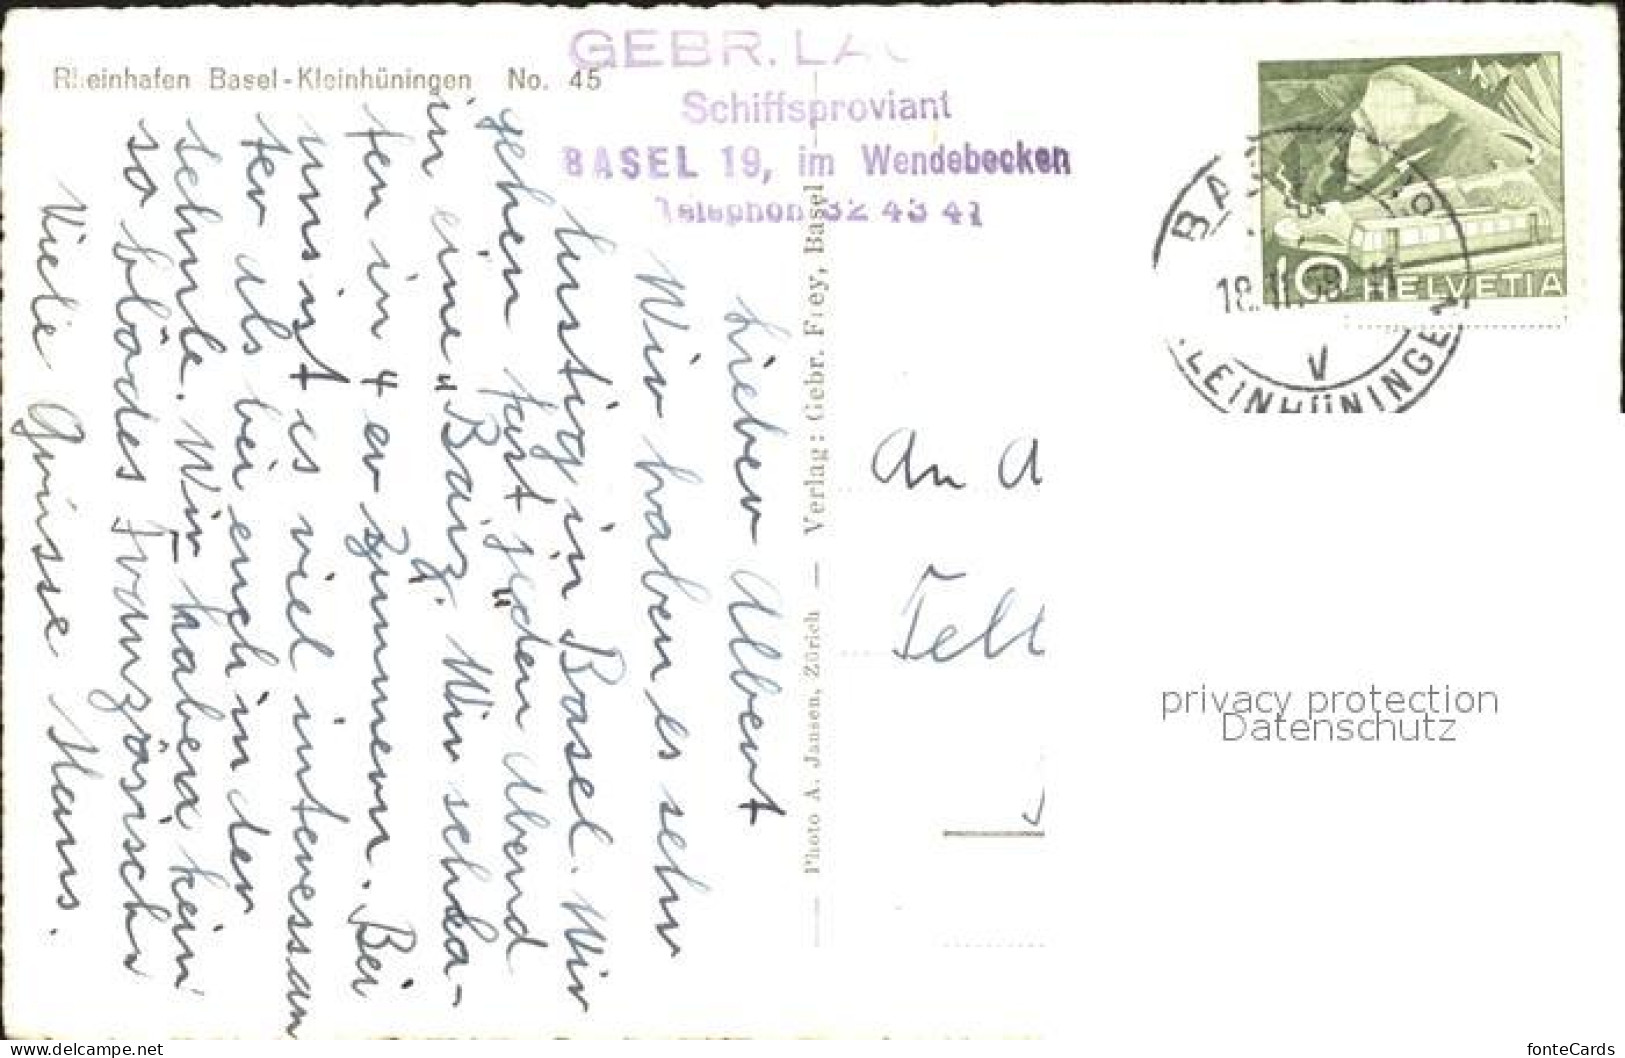 Rheinhafen Basel-Kleinhüningen No. 45
GEBR. LA
Schiffsproviant
BASEL 19, im Wendebecken
Telephon 32 43 41
HELVETIA
10
KLEINHÜNINGEN
V
Lieber Albert
Wir haben es sehr
lustig in Basel. Wir
gehen fast jeden Abend
in eine "Baiz". Wir schla-
fen in 4 er Zimmern. Bei
uns ist es viel interessan
ter als bei euch in der
Schule. Wir haben kein
so blödes Französisch
Viele Grüsse Hans.
Photo A. Jansen, Zürich — Verlag: Gebr. Frey, Basel
An A
privacy protection
Datenschutz
www.delcampe.net
josef765
fonteCards